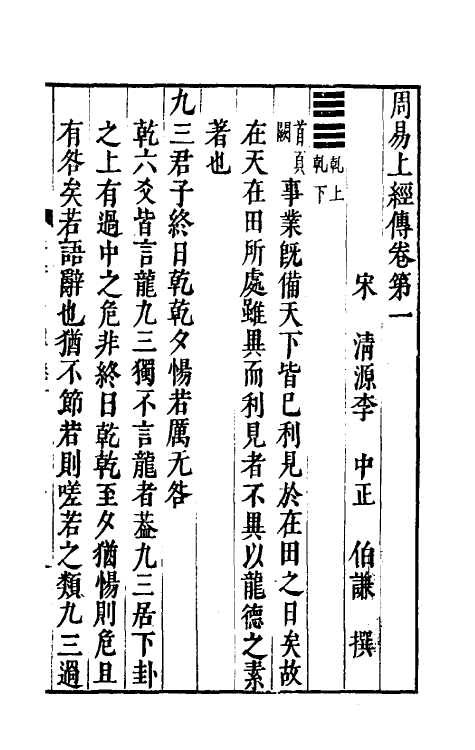 周易上經傳卷第一
宋 清源李 中正 伯謙 撰
乾上
乾下
首頁
闕 事業旣備天下皆已利見於在田之日矣故
在天在田所處雖異而利見者不異以龍德之素
著也
九三君子終日乾乾夕惕若厲无咎
乾六爻皆言龍九三獨不言龍者葢九三居下卦
之上有過中之危非終日乾乾至夕猶惕則危且
有咎矣若語辭也猶不節若則嗟若之類九三過